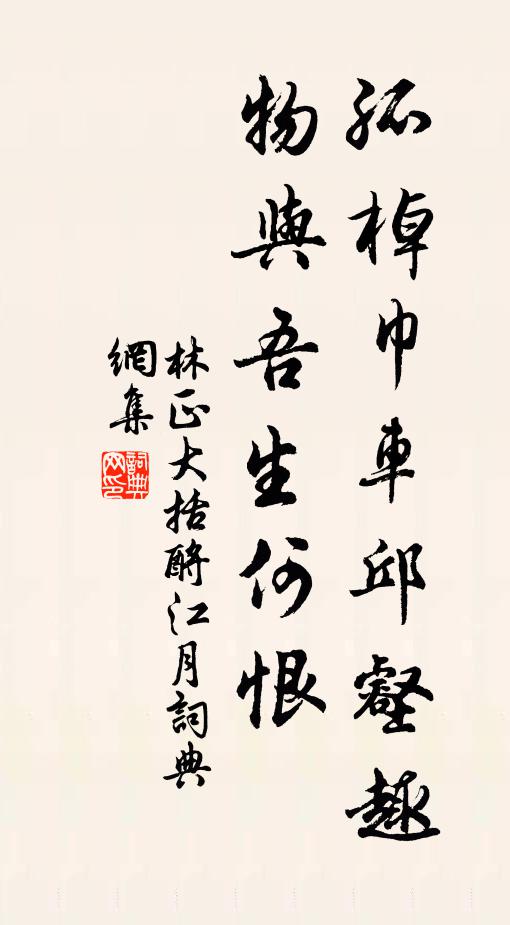 孤棹巾車邱壑趣
物與吾生何恨
林正大括酹江月詞典
網集
詞典網印